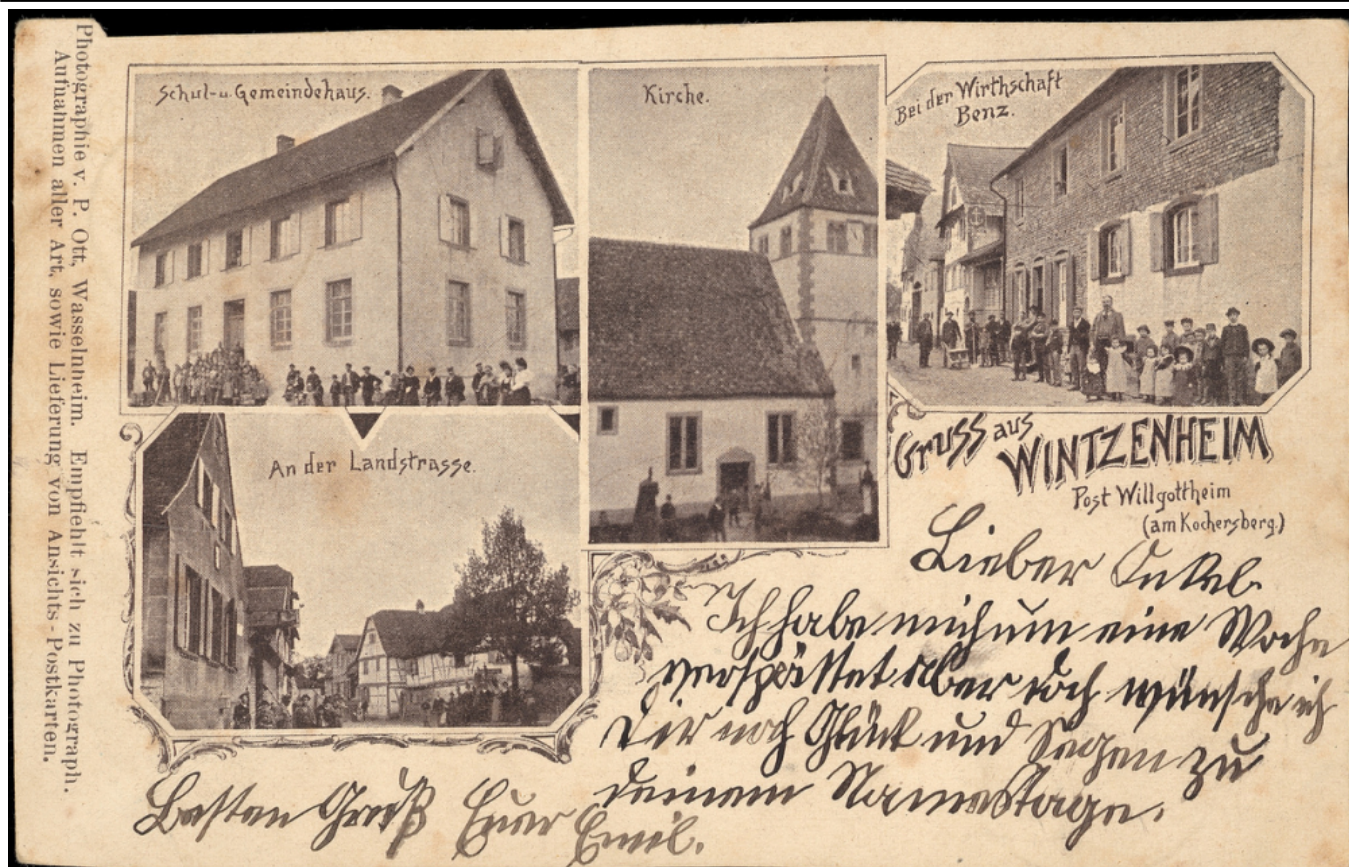 Photographie v. P. Ott, Wasselnheim. Empfiehlt sich zu Photograph.
Aufnahmen aller Art, sowie Lieferung von Ansichts-Postkarten.
Schul- u. Gemeindehaus.
Kirche.
Bei der Wirthschaft
Benz.
An der Landstrasse.
Gruss aus
WINTZENHEIM
Post Willgottheim
(am Kochersberg.)
Lieber Onkel
Ich habe mich um eine Woche
verspättet aber doch wünsche ich
Dir noch Glück und Segen zu
deinem Namestage.
Besten Gruß Euer Emil.